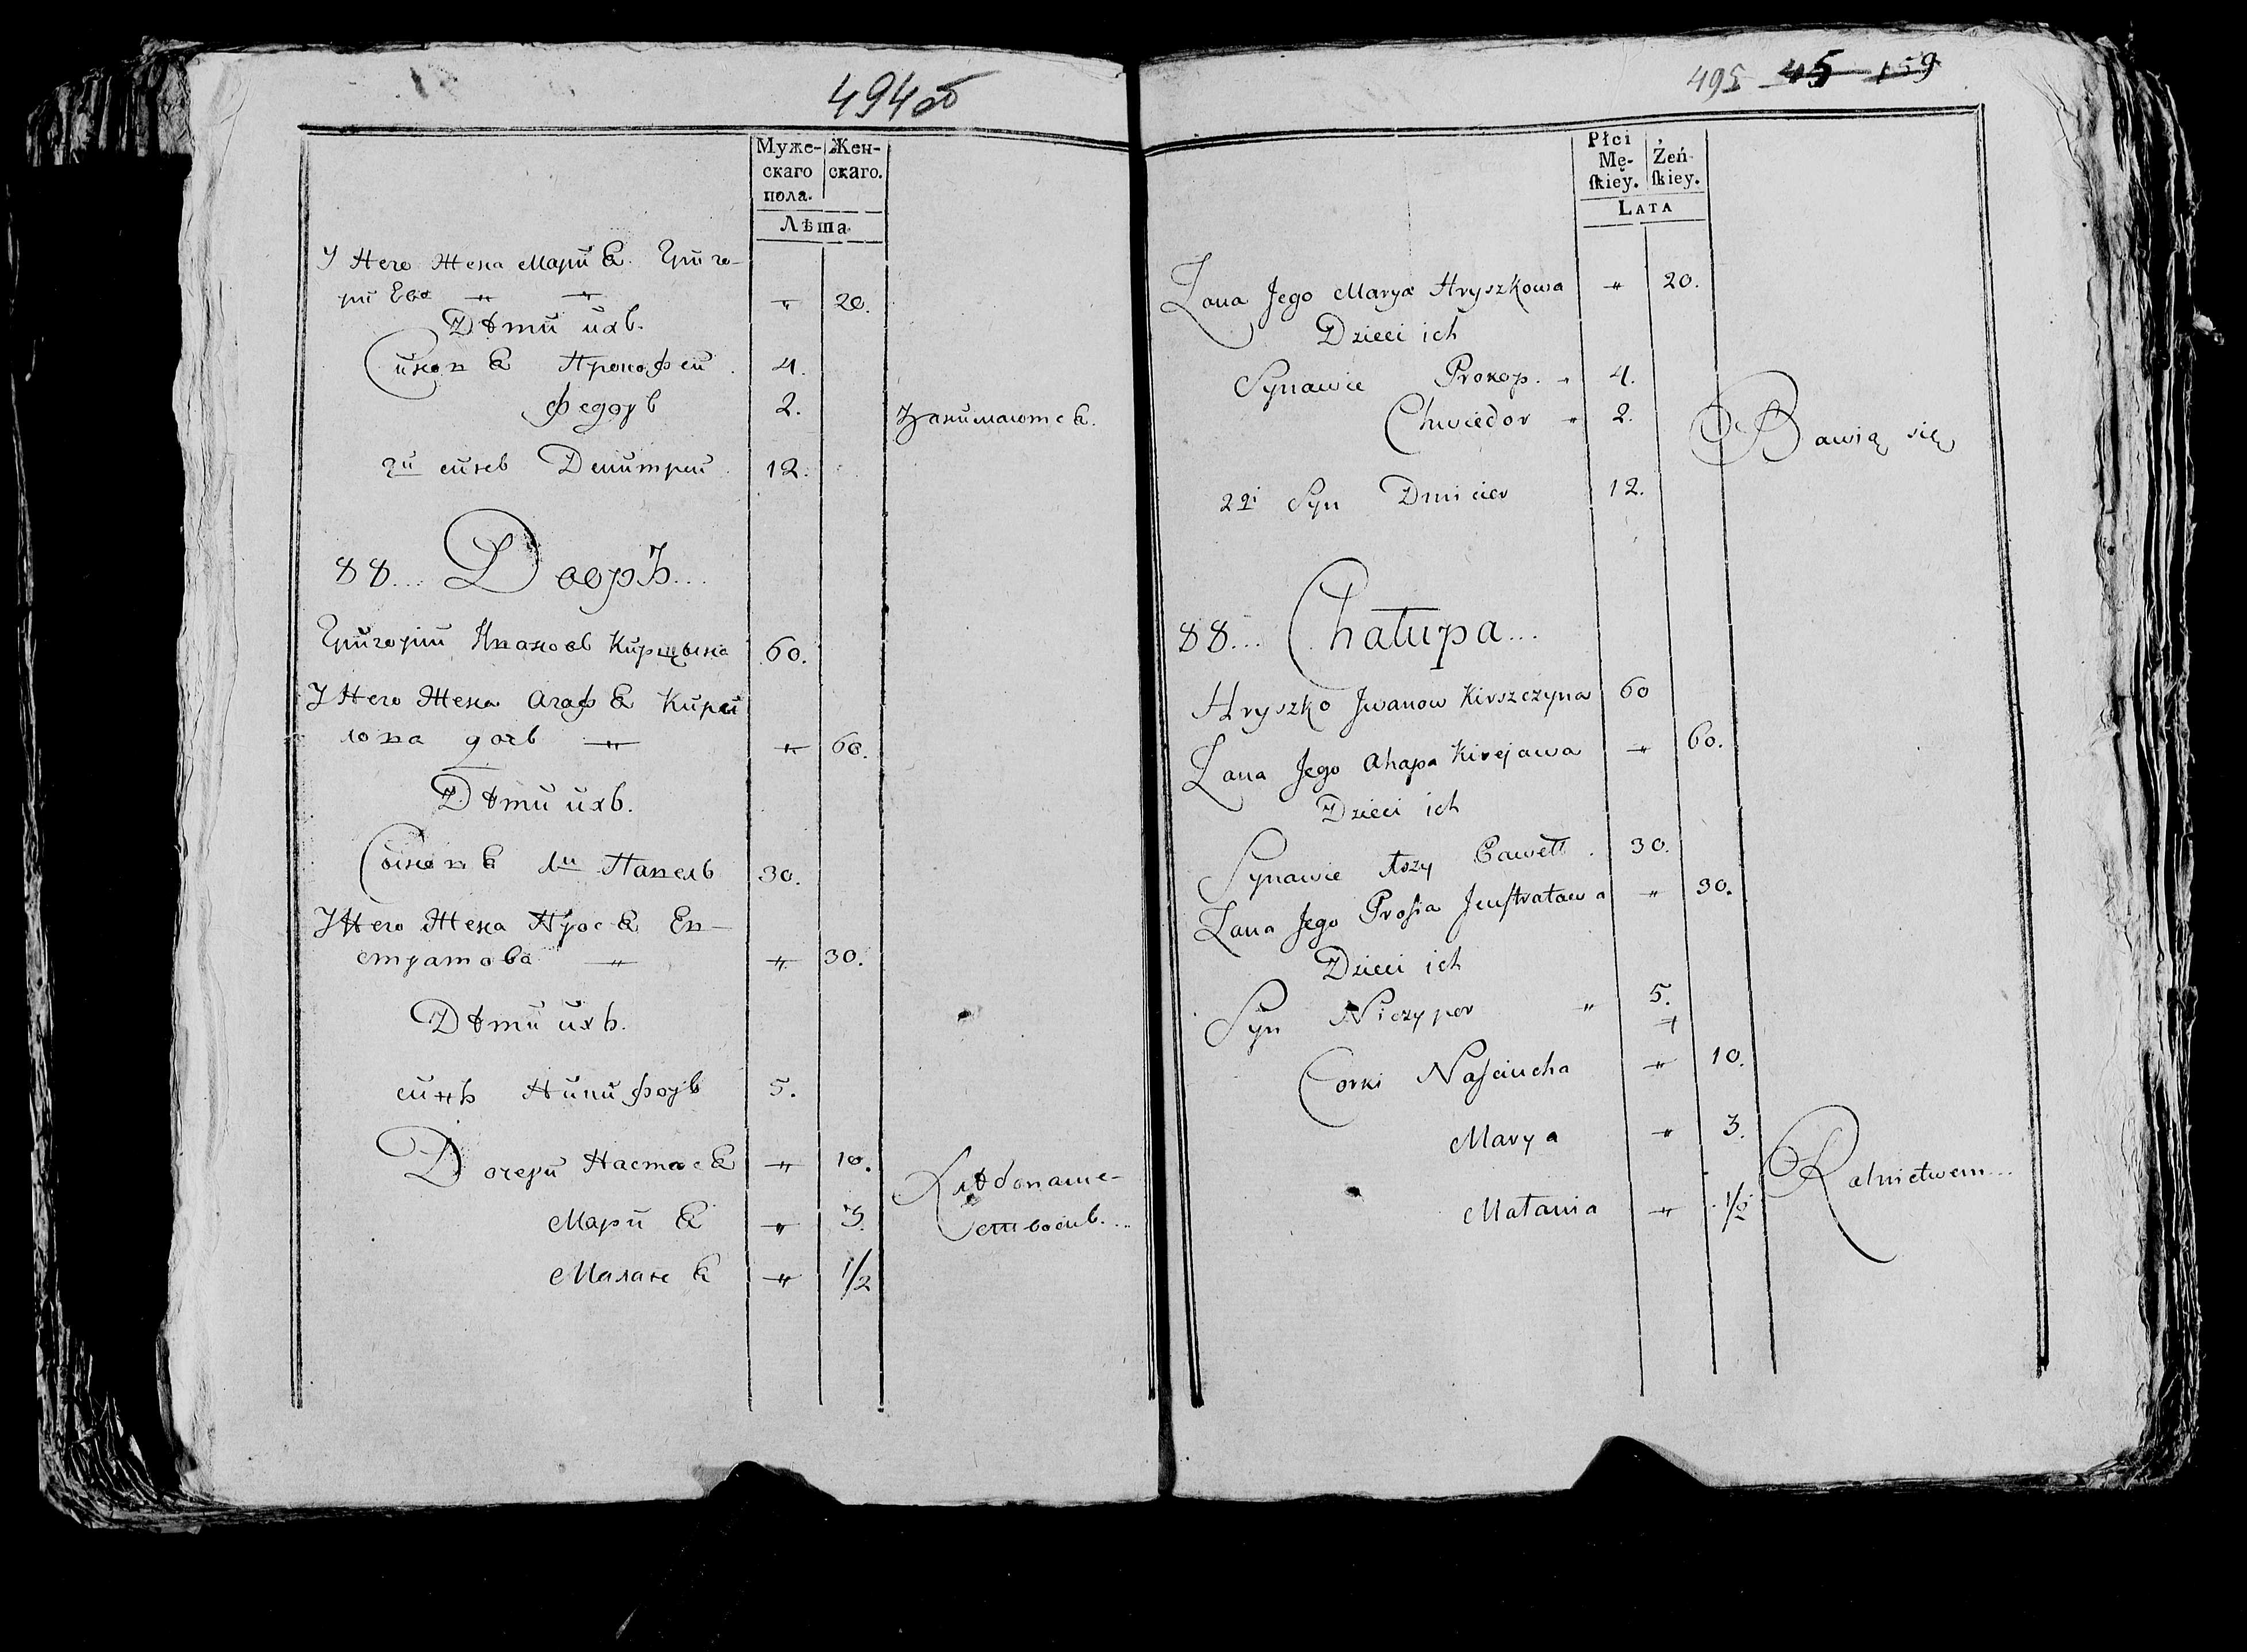 494 об
Муже- Жен-
скаго скаго.
пола.
Лѣта.
У Него Жена Мария Григо-
риева " " " 20.
Дѣти ихъ.
Синовя Прокофей . 4.
Федоръ 2. Занимаются.
2й синъ Демитрей . 12.
88... Дворъ...
Григорий Ивановъ Кирщына 60.
У Него Жена Агафя Кирей
лова дочь " " 60.
Дѣти ихъ.
Сыновя 1й Павелъ 30.
У Него Жена Прося Ев-
стратова " " 30.
Дѣти ихъ.
синъ Ничифоръ 5.
Дочери Настася " 10. Хлѣбопаше-
Мария " 3. ствомъ...
Маланя " 1/2
495 45 159
Płci
Mę- Żeń-
skiey. skiey.
LATA
Żana Jego Marya Hryszkowa " 20.
Dzieci ich
Synawie Prokop. " 4.
Chwiedor " 2. Bawią się
2gi Syn Dmicier 12.
88... Chałupa...
Hryszko Jwanow Kirszczyna 60
Żana Jego Ahapa Kirejawa " 60.
Dzieci ich
Synawie 1szy Pawełł . 30.
Żana Jego Prosia Jeustratawa " 30.
Dzieci ich
Syn Niczypor " 5.
Corki Nasciucha " 10.
Marya " 3.
Małania " 1/2 Rolnictwem...